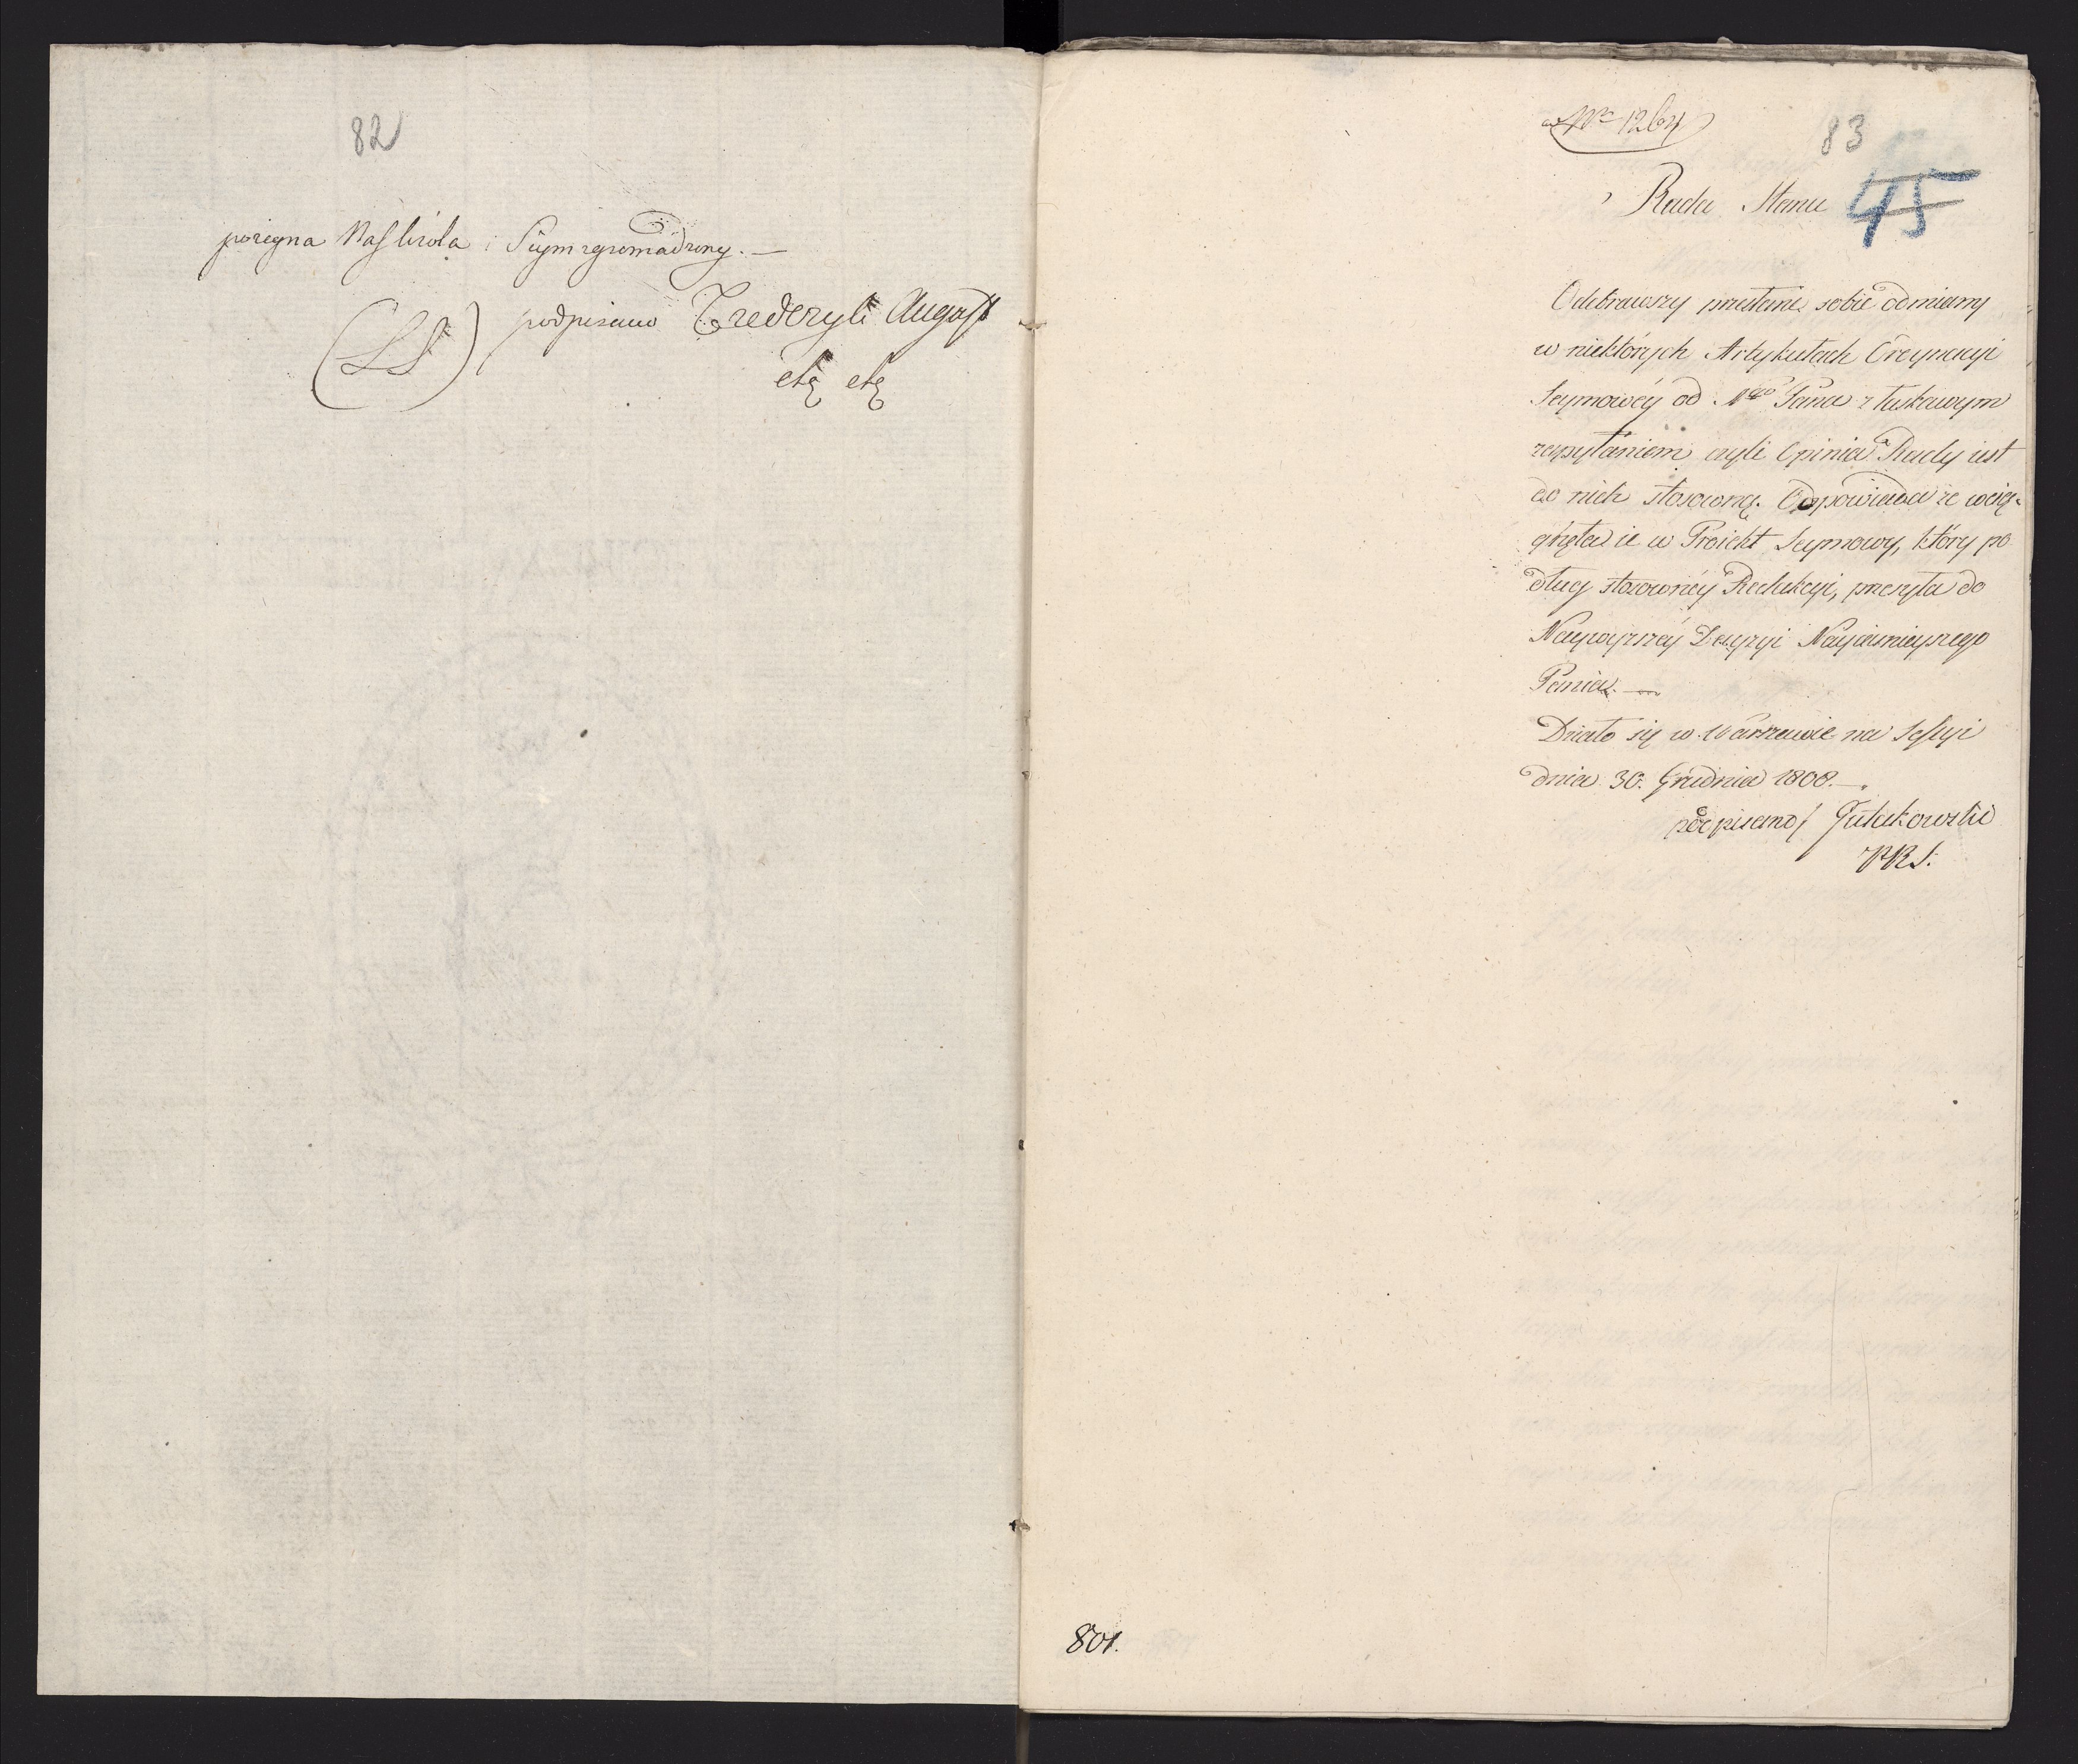 82
pożegna Nas Króla i Sejm zgromadzony. —
(LS) podpisano Frederyk August
etc etc
ad Nr 1264
83
Rada Stanu
45
Odebrawszy przesłane sobie odmiany
w niektórych Artykułach Ordynacyi
Seymowéy od Ngo Pana z łaskawym
zapytaniem czyli Opinia Rady iest
do nich stosowną. Odpowiada że wcią-
gnęła ie w Proiekt Seymowy, który po
dług stosownéy Redakcyi, przesyła do
Naywyższéy Decyzyi Nayiaśnieyszego
Pana. —
Działo się w Warszawie na Sessyi
dnia 30. Grudnia 1808. —
podpisano/ Gutakowski
PRS.
801.